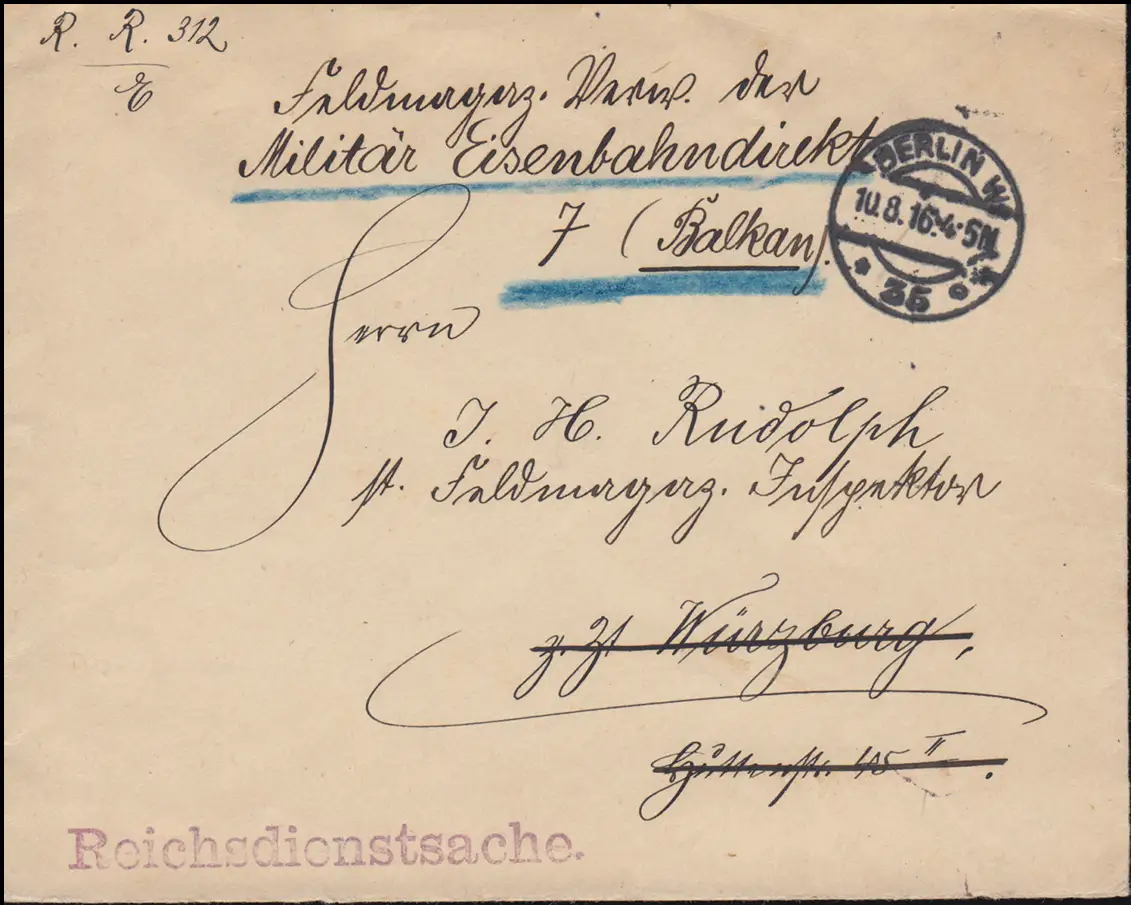 R. R. 312
E
Feldmagaz. Verw. der
Militär Eisenbahndirekt
7 (Balkan).
BERLIN W
10.8.16.4-5N.
* 35
Herrn
J. H. Rudolph
st. Feldmagaz. Inspektor
z. Zt Würzburg,
45 II.
Reichsdienstsache.